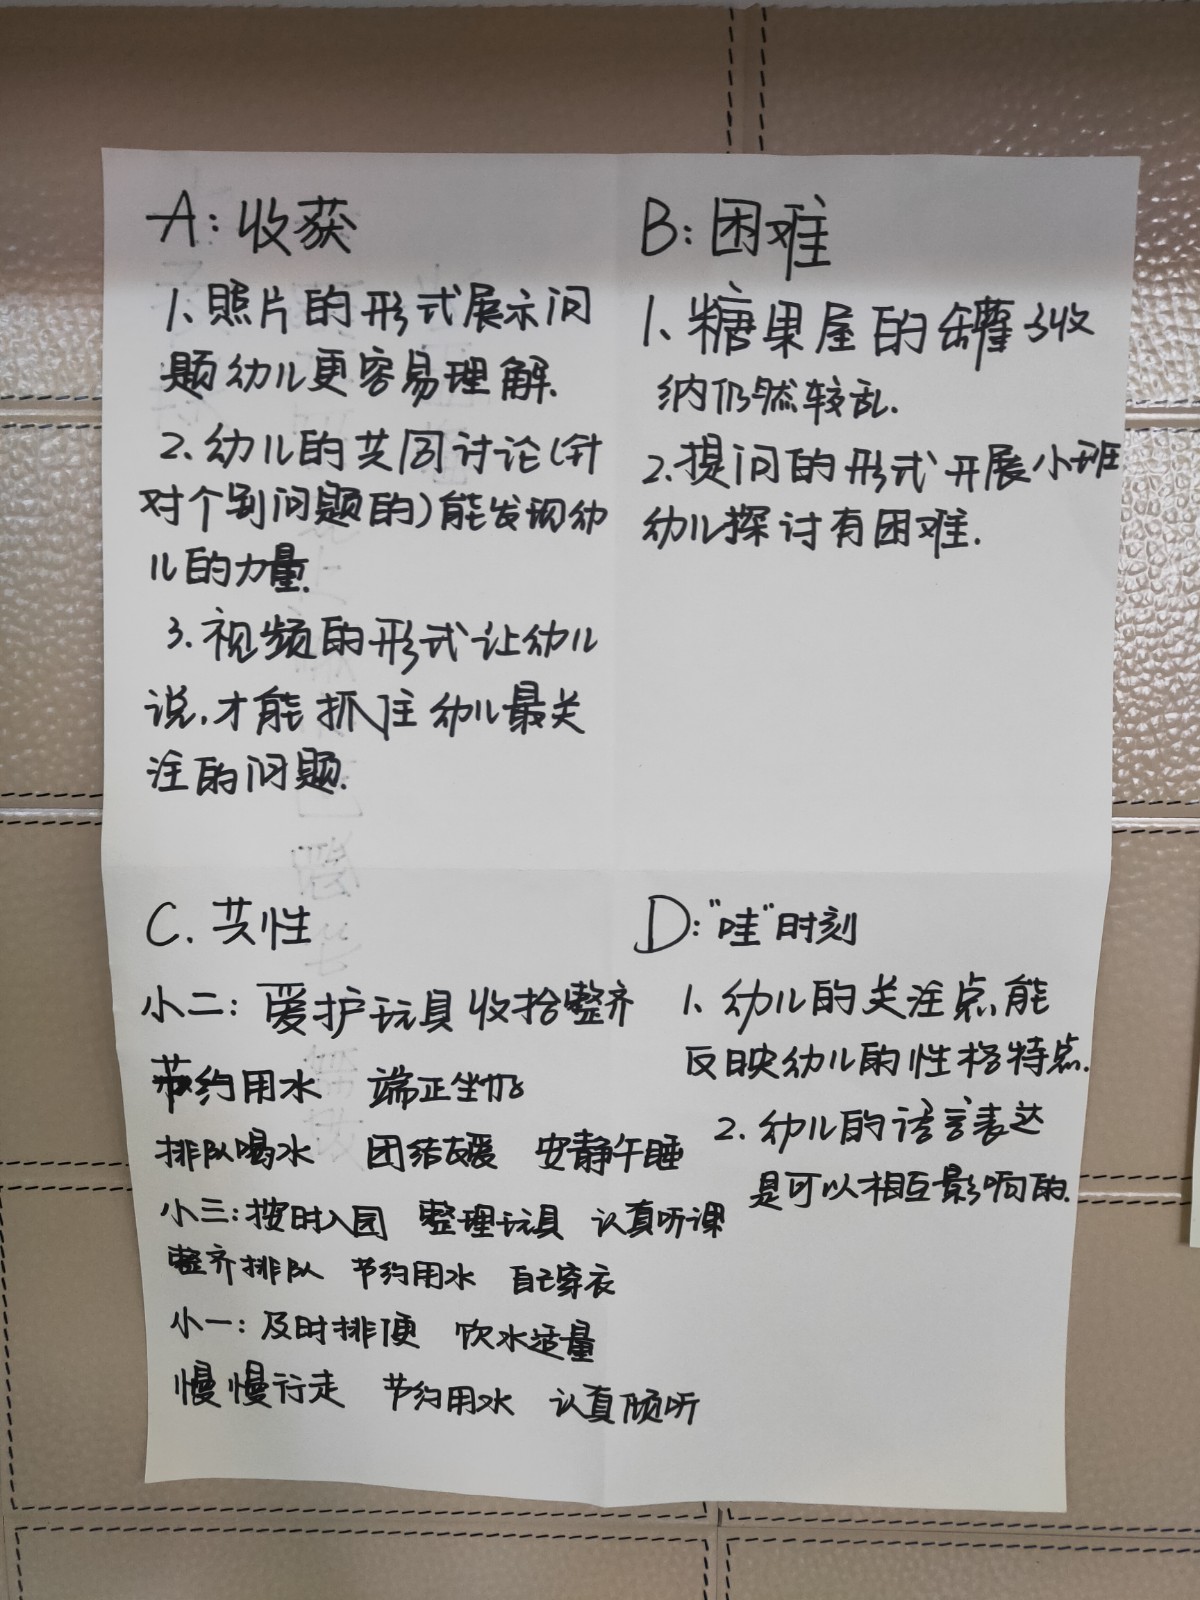 A：收获
1、照片的形式展示问
题幼儿更容易理解.
2.幼儿的共同讨论(针
对个别问题的)能发现幼
儿的力量.
3.视频的形式让幼儿
说,才能抓住幼儿最关
注的问题.
B：困难
1、糖果屋的罐子收
纳仍然较乱.
2.提问的形式开展小班
幼儿探讨有困难.
C.共性
小二：爱护玩具 收拾整齐
节约用水 端正坐好
排队喝水 团结友爱 安静午睡
小三：按时入园 整理玩具 认真听课
整齐排队 节约用水 自己穿衣
小一：及时排便 饮水适量
慢慢行走 节约用水 认真倾听
D："哇"时刻
1.幼儿的关注点能
反映幼儿的性格特点.
2.幼儿的语言表达
是可以相互影响的.